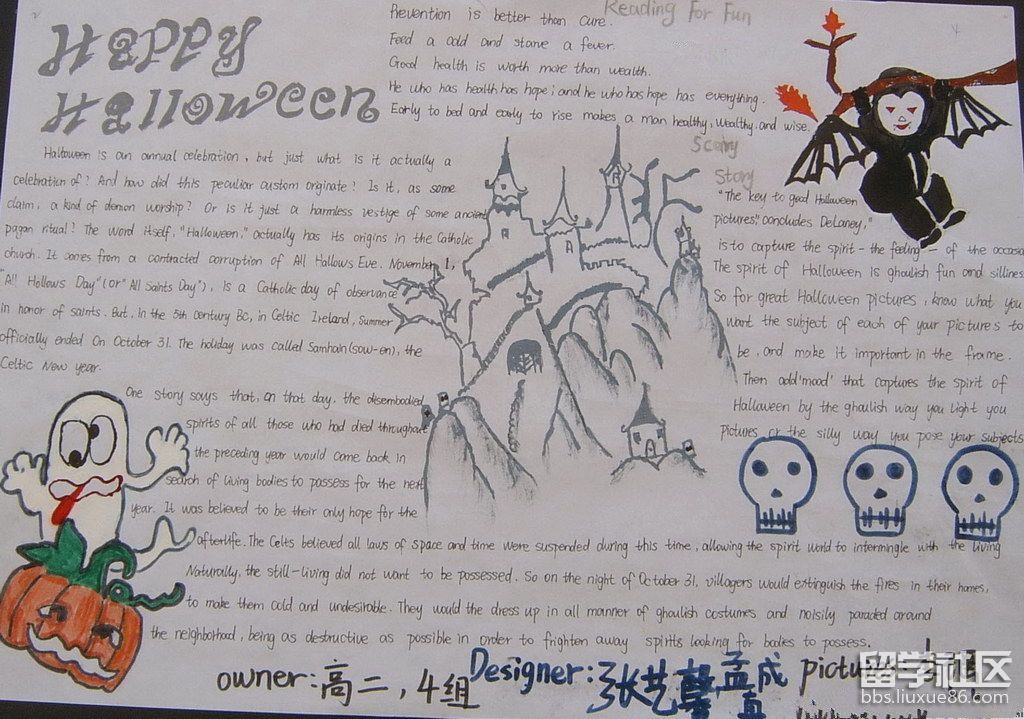 Happy
Halloween
Reading For Fun
Prevention is better than cure.
Feed a cold and starve a fever.
Good health is worth more than wealth.
He who has health has hope; and he who has hope has everything.
Early to bed and early to rise makes a man healthy, wealthy and wise.
Halloween is an annual celebration, but just what is it actually a
celebration of? And how did this peculiar custom originate? Is it, as some
claim, a kind of demon worship? Or is it just a harmless vestige of some ancient
pagan ritual? The word itself, "Halloween," actually has its origins in the Catholic
church. It comes from a contracted corruption of All Hallows Eve. November 1,
"All Hollows Day" (or "All Saints Day"), is a Catholic day of observance
in honor of saints. But, in the 5th century BC, in Celtic Ireland, summer
officially ended On October 31. The holiday was called Samhain (sow-en), the
Celtic New year.
One story says that, on that day, the disembodied
spirits of all those who had died throughout
the preceding year would come back in
search of living bodies to possess for the next
year. It was believed to be their only hope for the
afterlife. The Celts believed all laws of space and time were suspended during this time, allowing the spirit world to intermingle with the living
Naturally, the still-living did not want to be possessed. So on the night of October 31, villagers would extinguish the fires in their homes,
to make them cold and undesirable. They would the dress up in all manner of ghoulish costumes and noisily paraded around
the neighborhood, being as destructive as possible in order to frighten away spirits looking for bodies to possess.
Scary
Story
"The key to good Halloween
pictures," concludes DeLaney,"
is to capture the spirit - the feeling - of the occasion
The spirit of Halloween is ghoulish fun and silliness
So for great Halloween pictures, know what you
want the subject of each of your pictures to
be, and make it important in the frame.
Then add 'mood' that captures the spirit of
Halloween by the ghoulish way you light you
pictures or the silly way you pose your subjects
owner: 高二, 4组
Designer: 张艺馨 孟成真
picture:
留学社区
bbs.liuxue86.com